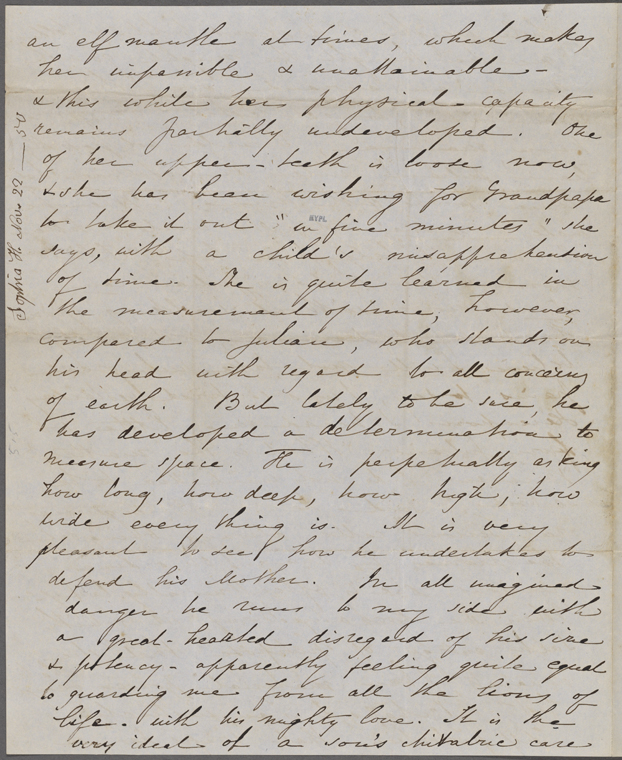 an elf mantle at times, which makes
her impassible & unattainable -
& this while her physical capacity
remains partially undeveloped. One
of her upper-teeth is loose now,
& she has been wishing for Grandpapa
to take it out "in five minutes" she
says, with a child's misapprehention
of time. She is quite learned in
the measurement of time, however,
compared to Julian, who stands on
his head with regard to all concerns
of earth. But lately to be sure, he
has developed a determination to
measure space. He is perpetually asking
how long, how deep, how high, how
wide every thing is. It is very
pleasant to see how he undertakes to
defend his Mother. In all imagined
danger he runs to my side with
a great-hearted disregard of his size
& potency - apparently feeling quite equal
to guarding me from all the lions of
life - with his mighty love. It is the
very ideal of a son's chivalric care
Sophia H. Nov. 22 — 50
NYPL